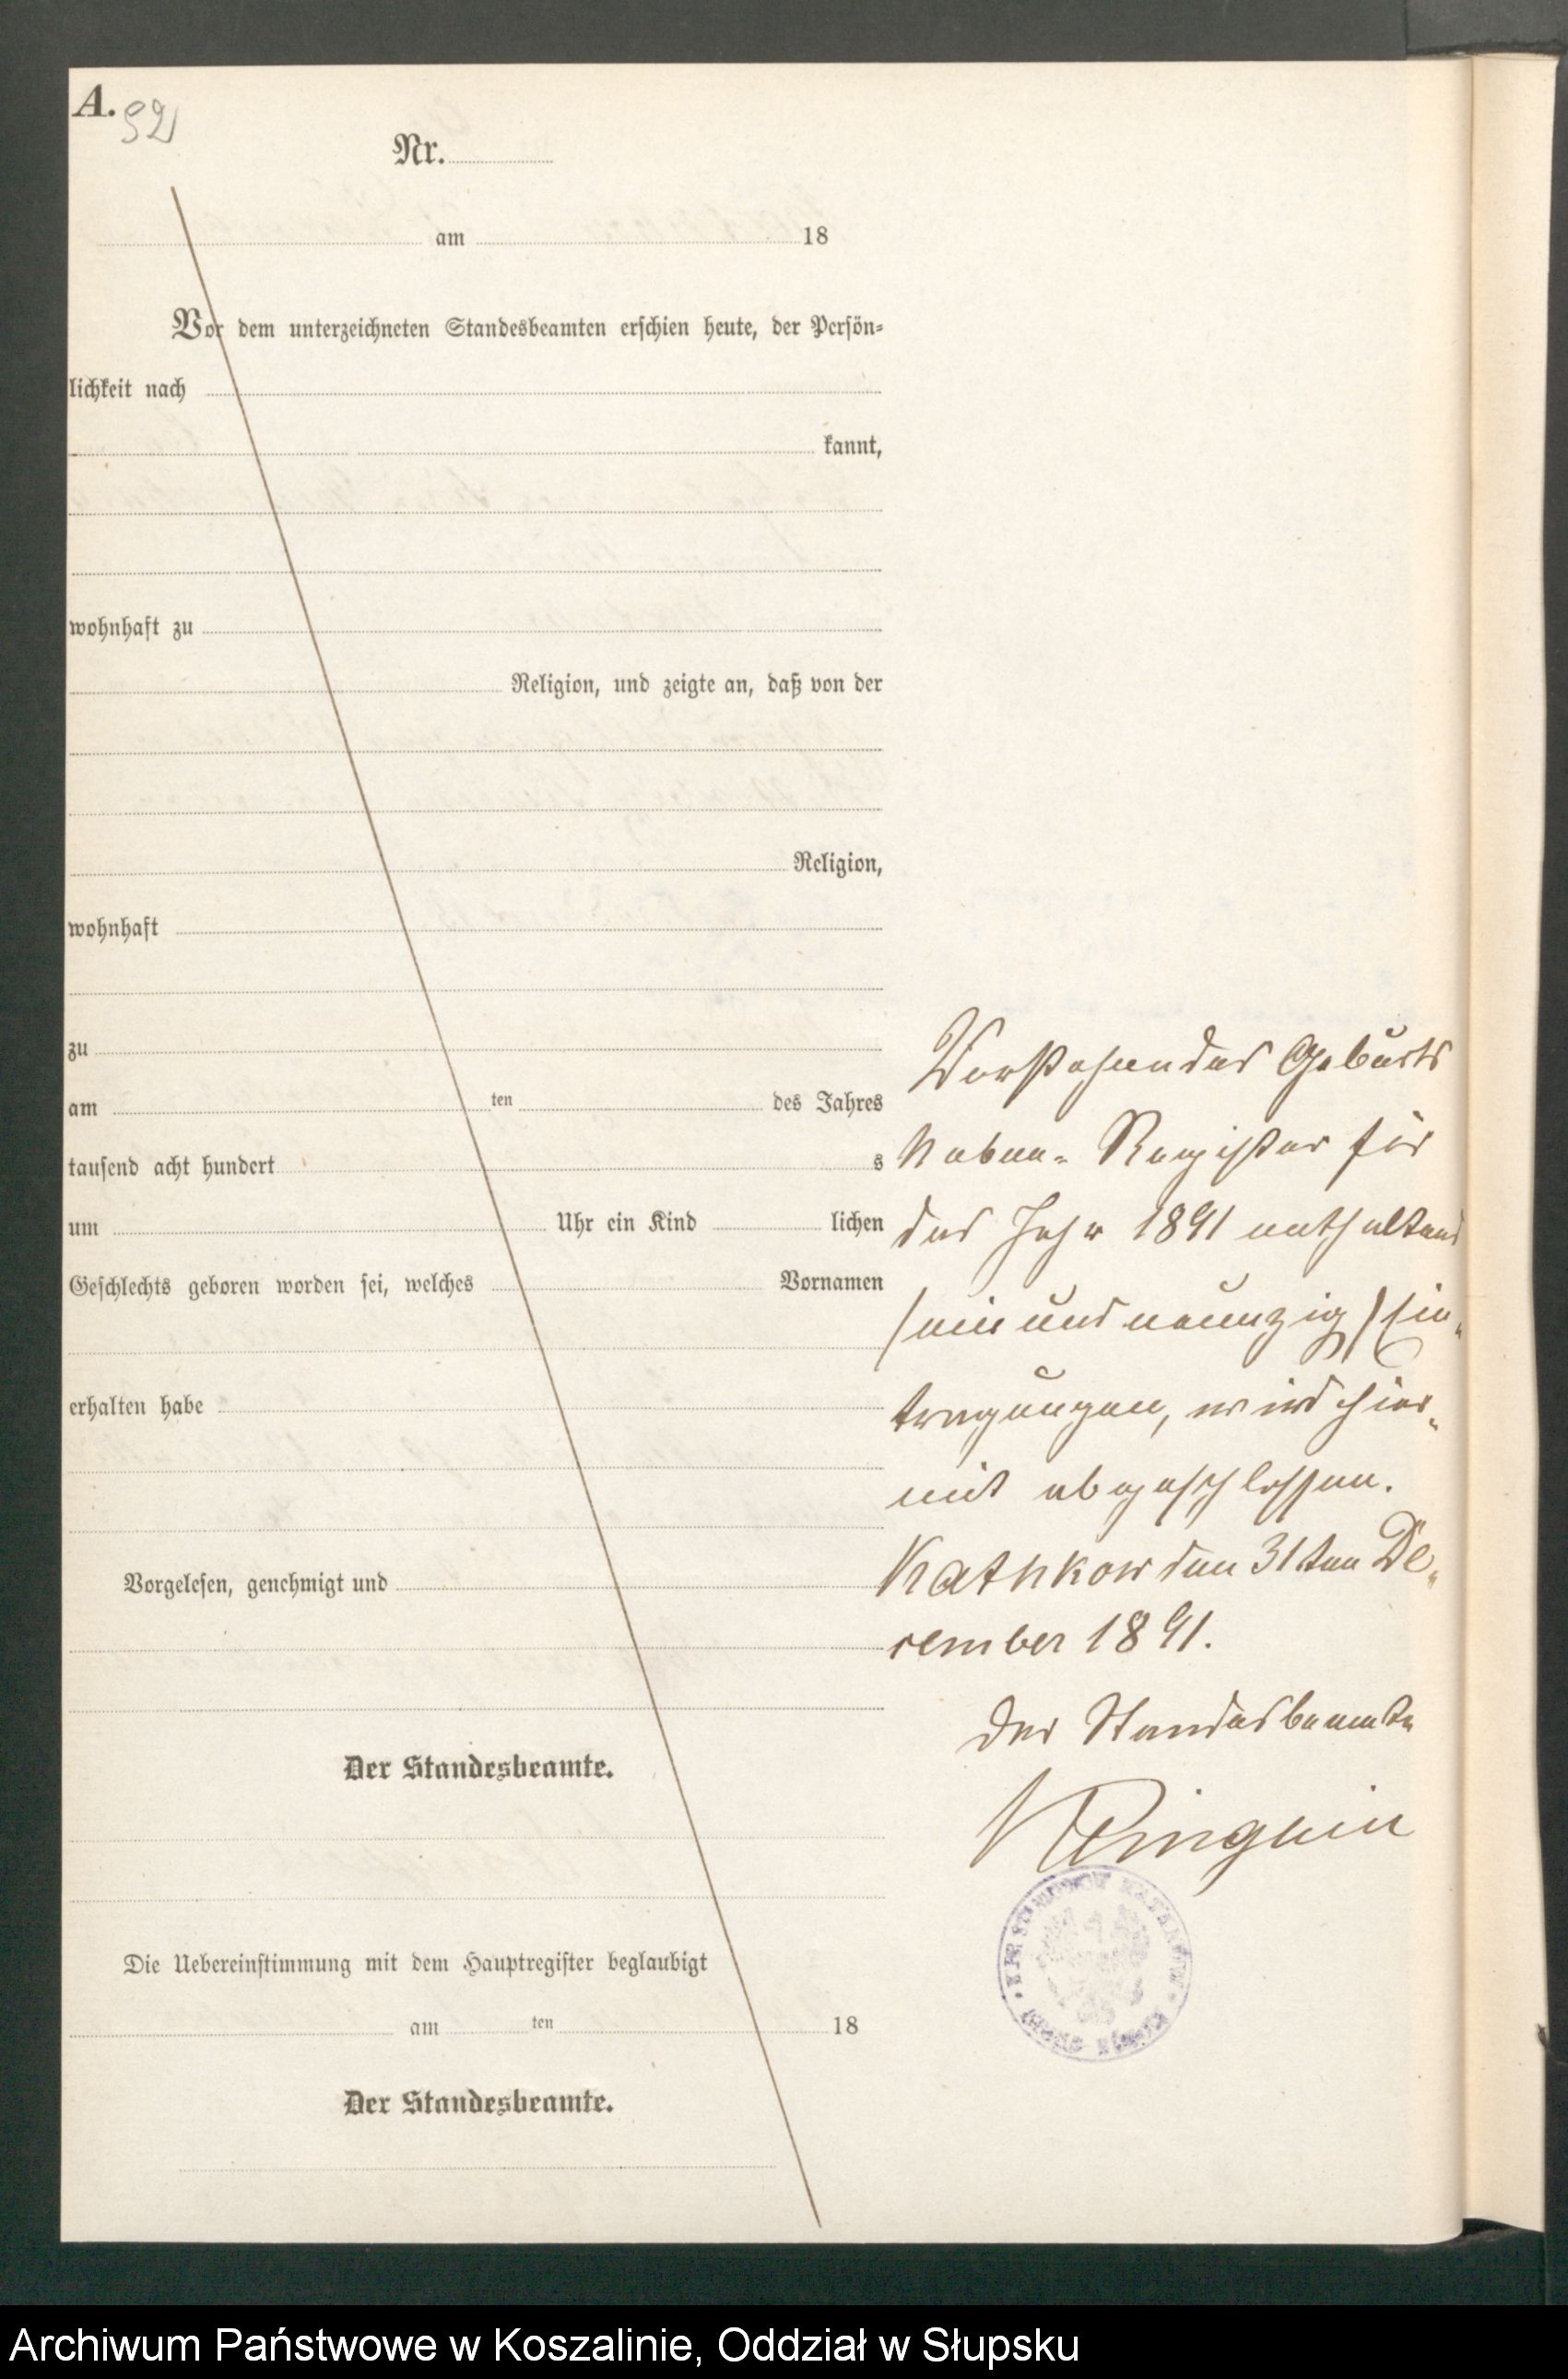 A.
92
Nr.
am 18
Vor dem unterzeichneten Standesbeamten erschien heute, der Persön-
lichkeit nach
kannt,
wohnhaft zu
Religion, und zeigte an, daß von der
Religion,
wohnhaft
zu
am ten des Jahres
tausend acht hundert s
um Uhr ein Kind lichen
Geschlechts geboren worden sei, welches Vornamen
erhalten habe
Vorgelesen, genehmigt und
Der Standesbeamte.
Die Uebereinstimmung mit dem Hauptregister beglaubigt
am ten 18
Der Standesbeamte.
Vorstehendes Geburts
Neben- Register für
das Jahr 1891 enthaltend
(ein und neunzig) Ein-
tragungen, wird hier-
mit abgeschlossen.
Kathkow den 31ten De-
cember 1891.
Der Standesbeamte
Archiwum Państwowe w Koszalinie, Oddział w Słupsku